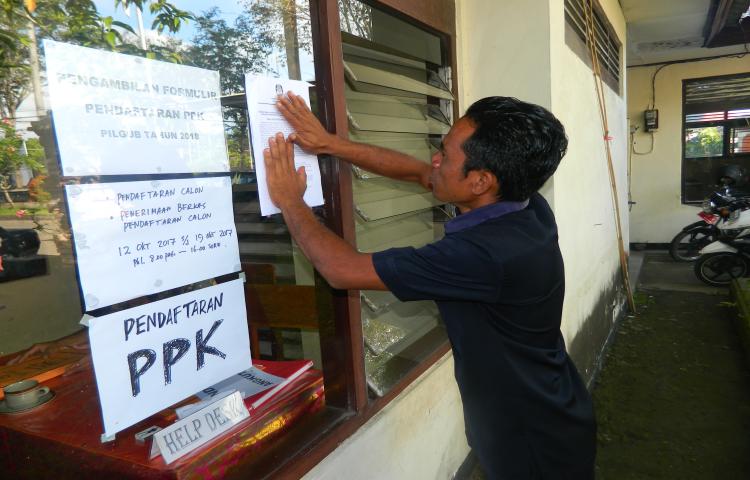 PENGAMBILAN FORMULIR
PENDAFTARAN PPK
PILGUB TAHUN 2018
- PENDAFTARAN CALON
- PENERIMAAN BERKAS
PENDAFTARAN CALON
12 OKT 2017 S/D 19 OKT 2017
PKL 8.00 PAGI - 16.00 SORE
PENDAFTARAN
PPK
HELP DESK